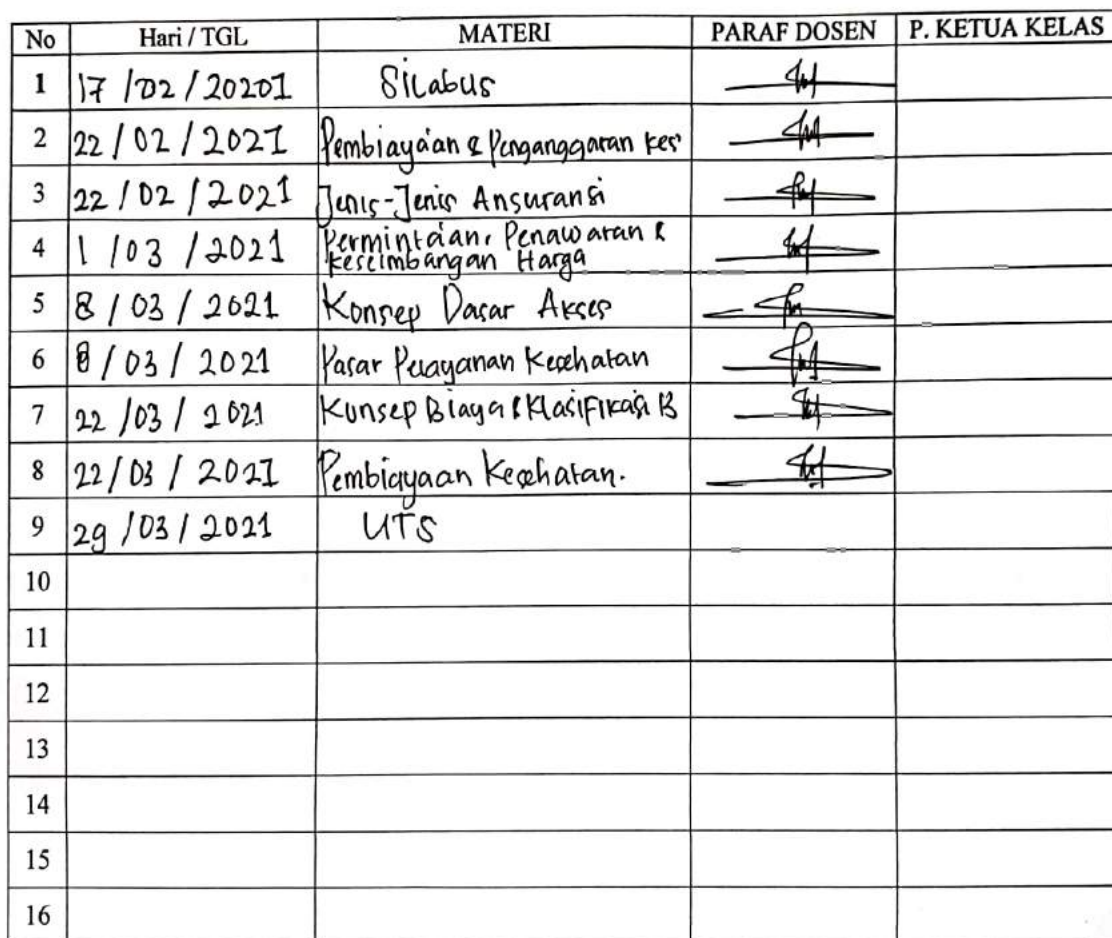 No Hari / TGL MATERI PARAF DOSEN P. KETUA KELAS
1 17 /02 / 20201 Silabus
2 22 / 02 / 2021 Pembiayaan & Penganggaran kes
3 22 / 02 / 2021 Jenis-Jenis Ansuransi
4 1 / 03 / 2021 Permintaan, Penawaran &
keseimbangan Harga
5 8 / 03 / 2021 Konsep Dasar Akses
6 8 / 03 / 2021 Pasar Pelayanan Kesehatan
7 22 /03 / 2021 Konsep Biaya & Klasifikasi B
8 22/ 03 / 2021 Pembiayaan Kesehatan.
9 29 /03 / 2021 UTS
10
11
12
13
14
15
16